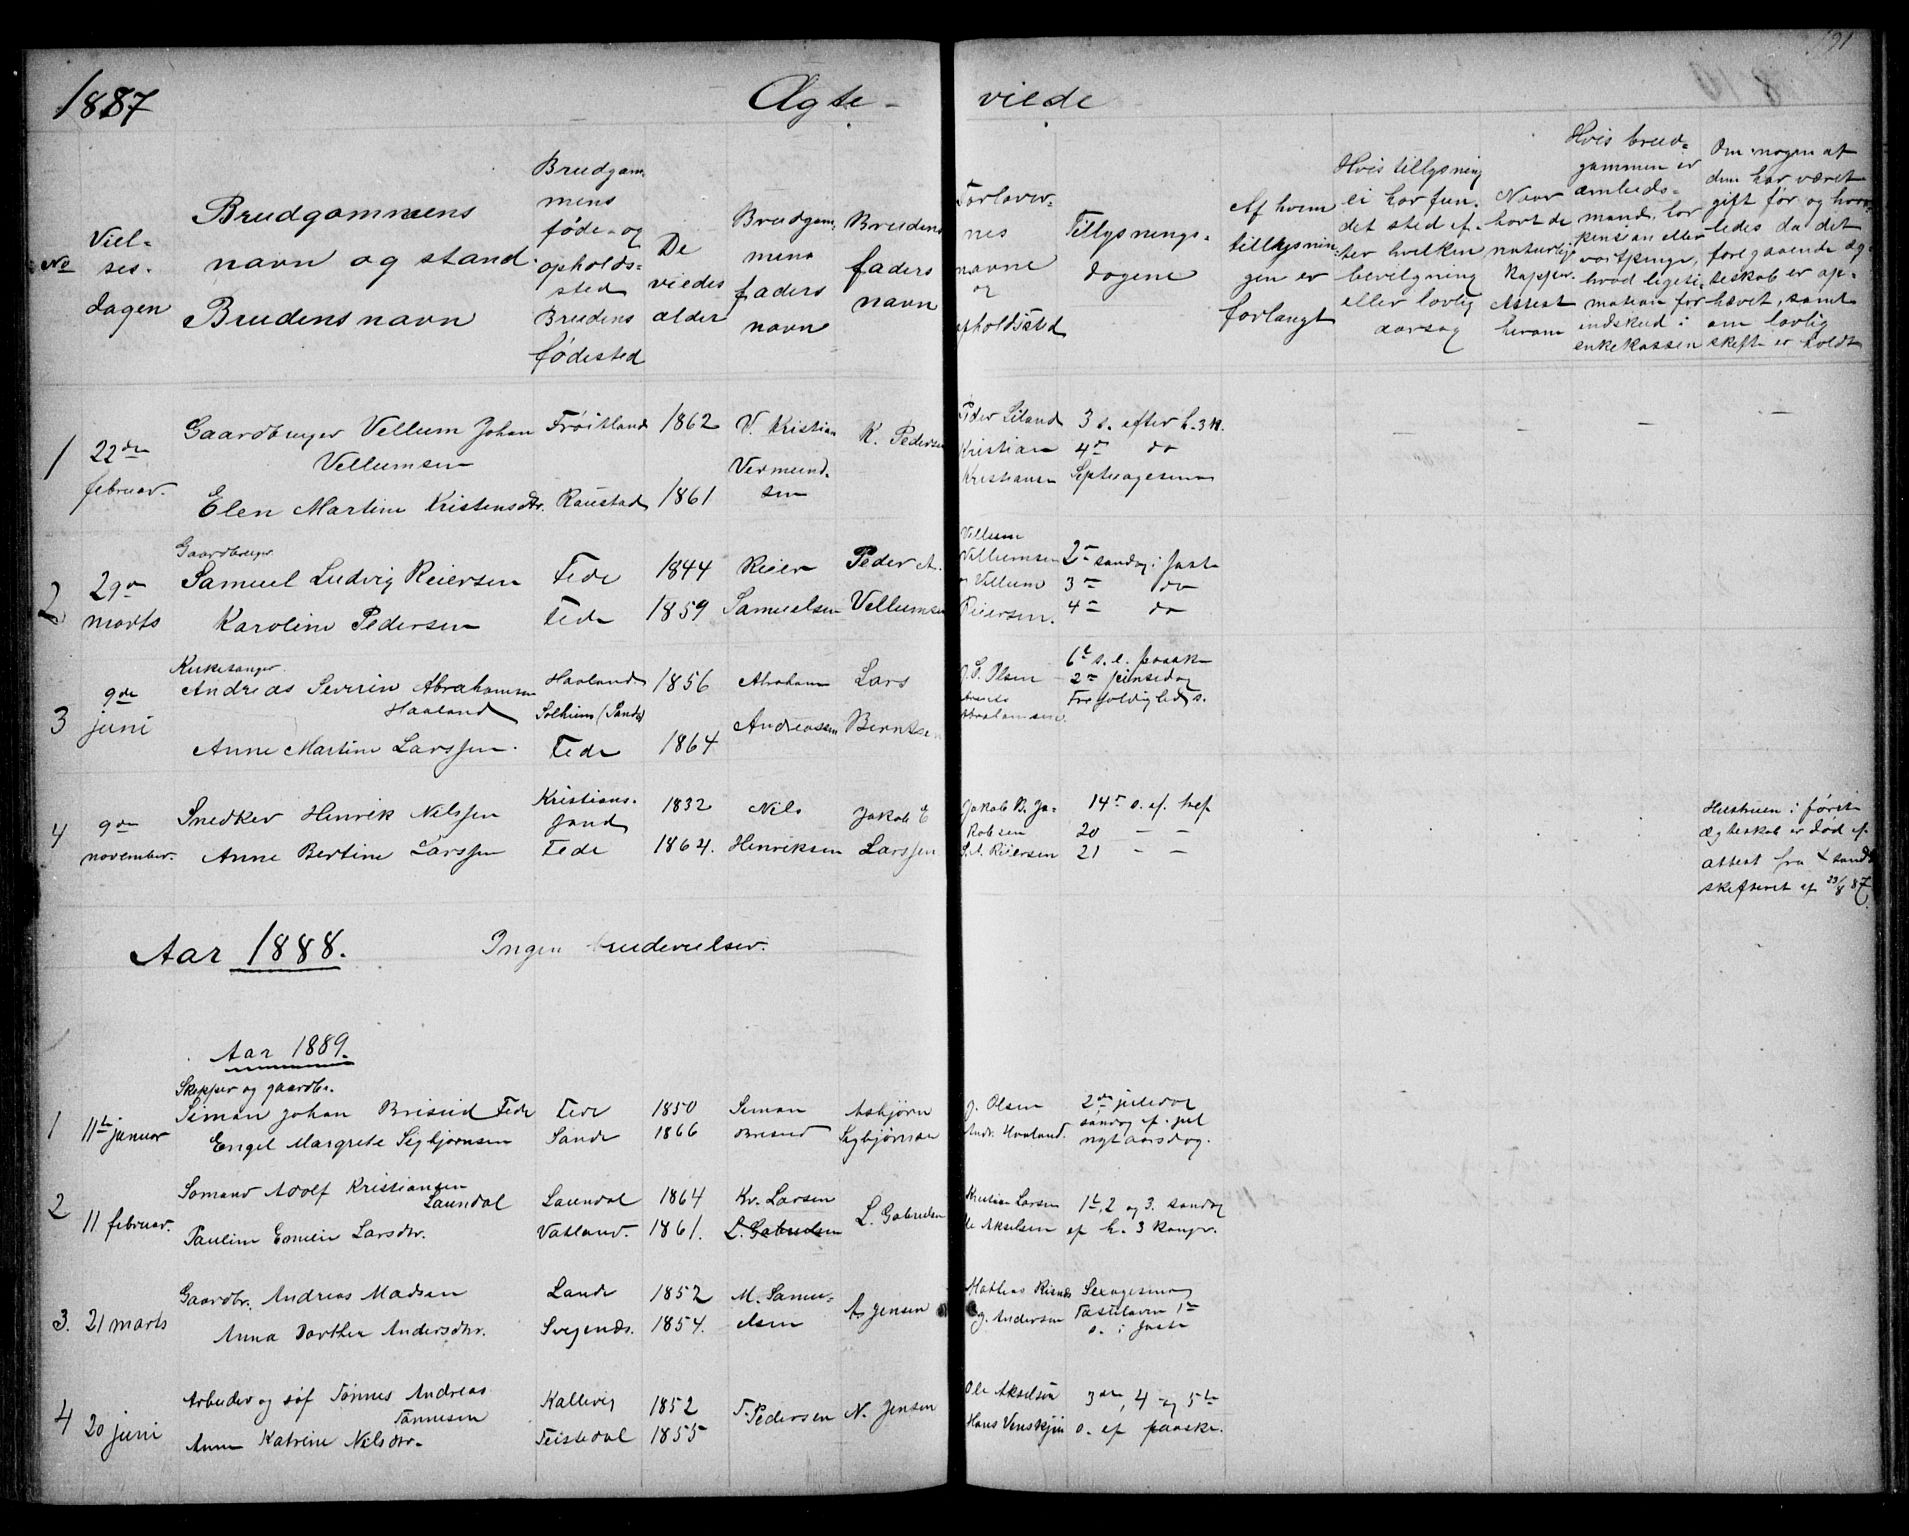 191
1887
Ægte- viede
No
Viel-
ses-
dagen
Brudgommens
navn og stand.
Brudens navn
Brudgom-
mens
føde- og
opholds-
sted
Brudens
fødested
De
viedes
alder
Brudgom-
mens
faders
navn
Brudens
faders
navn
Forlover-
nes
navne
og
opholdssted
Tillysnings-
dagene
Af hvem
tillysnin-
gen er
forlangt
Hvis tillysning
ei har fun-
det sted ef-
ter hvilken
bevilgning
eller lovlig
aarsag
Naar
havt de
naturlige
Kopper.
Attest
herom
Hvis brud-
gommen er
embeds-
mand, for
pension eller
hvad legiti-
mation for
indskud i
enkekassen
Om nogen af
dem har været
gift før og hvor-
ledes da det
foregaaende æg-
teskab er op-
hævet, samt
om lovlig
skifte er holdt
1 22de
februar.
Gaardbruger Vellum Johan
Vellumsen
Elen Martine Kristensdtr.
Frøitland
Raustad
1862
1861
V. Kristian
Vermund-
sen
K. Pedersen
Peder Eiland
Kristian
Kristiansen
3 s. efter h. 3 K.
4de do
Septuagesima
2 29de
marts
Gaardbruger
Samuel Ludvig Reiersen
Karoline Pedersen
Fede
Fede
1844
1859
Reier
Samuelsen
Peder A.
Vellumsen
Villum
Villumsen
og Villum
Reiersen.
2de søndag i faste
3de do
4de do
3 9de
juni
Kirkesanger
Andreas Severin Abrahamsen
Haaland
Anne Martine Larssen.
Haaland
Solheim (Sande)
Fede
1856
1864
Abraham
Andreassen
Lars
Berntsen
J. S. Olsen
Abrahamsen
6te s. e. paaske
2den pinsedag
Trefoldigheds s.
4 9de
november.
Snedker Henrik Nilssen
Anne Bertine Larssen
Kristians-
sand
Fede
1832
1864.
Nils
Henriksen
Jakob E
Larssen
Jakob B. Ja-
kobsen
S. L. Reiersen
14de s. ef. tref
20 — —
21 — —
Hustruen i første
ægteskab er død ef.
attest fra Xsands
skifteret af 23/8 87.
Aar 1888. Ingen brudevielser.
Aar 1889.
1 11te januar
Skipper og gaardbr.
Siman Johan Briseid Fede
Engel Margrete Sigbjørnsen
Fede
Sande
1850
1866
Simon
Briseid
Asbjørn
Sigbjørnsen
J. Olsen
Andr. Haaland.
2den juledag
søndag ef. jul
nyt aarsdag.
2 11 februar.
Sømand Adolf Kristiansen
Laundal
Pauline Emilie Larsdtr.
Laundal
Vatland.
1864
1861.
Kr. Larsen
L. Gabrielsen
L. Gabrielsen
Kristian Larsen
Ole Akselsen
1te, 2 og 3. søndag
ef h. 3 Konger.
3. 21 marts
Gaardbr. Andreas Madsen
Anna Dorthea Andersdtr.
Lande
Svegenæs.
1852
1854.
M. Samu-
elsen
A. Jensen
Mathias Risnæs
og. Andersen
Sexagesima
Fastelavn 1te
s. i faste
4 20 juni
Arbeider og søf Tønnes Andreas
Tønnesen
Anne Katrine Nilsdtr.
Kallevig
Feistedal
1852
1855
T. Pedersen
N. Jensen
Ole Akselsen
Hans Venskjøn
3die, 4 og 5te
s. ef paaske.